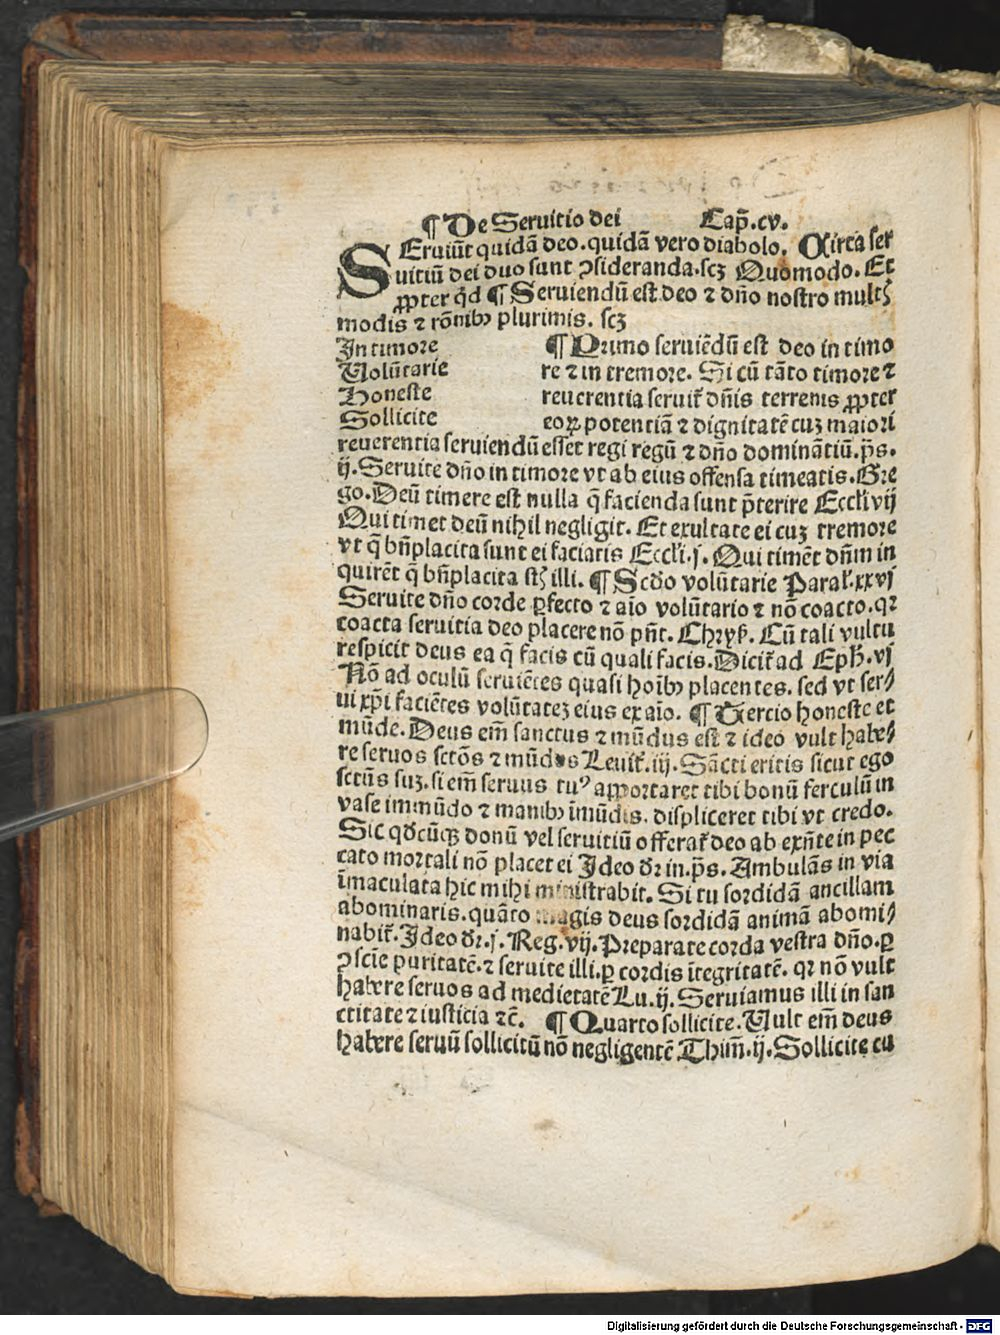 ¶ De Seruitio dei Cap̃.cv.
SEruiũt quidã deo.quidã vero diabolo. Circa ser
uitiũ dei duo sunt ꝯsideranda.scꝫ Quomodo. Et
ꝓpter qd̃ ¶ Seruiendũ est deo ⁊ dño nostro multꝭ
modis ⁊ rõnibꝰ plurimis. scꝫ
In timore
Volũtarie
Honeste
Sollicite
¶ Primo seruiẽdũ est deo in timo
re ⁊ in tremore. Si cũ tãto timore ⁊
reuerentia seruit᷑ dñis terrenis ꝓpter
eoꝝ potentiã ⁊ dignitatẽ cuꝫ maiori
reuerentia seruiendũ esset regi regũ ⁊ dño dominãtiũ.p̃s.
ij.Seruite dño in timore vt ab eius offensa timeatis.Gre
go.Deũ timere est nulla q̃ facienda sunt p̃terire Eccl'i vij
Qui timet deũ nihil negligit. Et exultate ei cuꝫ tremore
vt q̃ bñplacita sunt ei faciatis Eccl'i.j. Qui timẽt dñm in
quirẽt q̃ bñplacita st̃ illi. ¶ Scd̃o volũtarie Paral'.xxvj
Seruite dño corde ꝑfecto ⁊ aĩo volũtario ⁊ nõ coacto.qꝛ
coacta seruitia deo placere nõ pñt. Chryß. Cũ tali vultu
respicit deus ea q̃ facis cũ quali facis.Dicit᷑ ad Eph̃.vj
Nõ ad oculũ seruiẽtes quasi hoĩbꝰ placentes. sed vt ser⸗
ui xp̃i faciẽtes volũtateꝫ eius ex aĩo. ¶ Tercio honeste et
mũde.Deus em̃ sanctus ⁊ mũdus est ⁊ ideo vult habe⸗
re seruos sctõs ⁊ mũdos Leuit᷑.iij.Sãcti eritis sicut ego
sctũs suꝫ.si em̃ seruus tuꝰ apportaret tibi bonũ ferculũ in
vase immũdo ⁊ manibꝰ ĩmũdis. displiceret tibi vt credo.
Sic qd̃cũqꝫ donũ vel seruitiũ offerat᷑ deo ab exñte in pec
cato mortali nõ placet ei Ideo dr̃ in.p̃s. Ambulãs in via
ĩmaculata hic mihi ministrabit. Si tu sordidã ancillam
abominaris.quãto magis deus sordidã animã abomi⸗
nabit᷑.Ideo dr̃.j.Reg.vij.Preparate corda vestra dño.ꝑ
ꝯsciẽ puritatẽ.⁊ seruite illi.ꝑ cordis ĩtegritatẽ. qꝛ nõ vult
habere seruos ad medietatẽ Lu.ij.Seruiamus illi in san
ctitate ⁊ iusticia ⁊c̃. ¶ Quarto sollicite.Uult em̃ deus
habere seruũ sollicitũ nõ negligentẽ Thim̃.ij.Sollicite cu
Digitalisierung gefördert durch die Deutsche Forschungsgemeinschaft - DFG